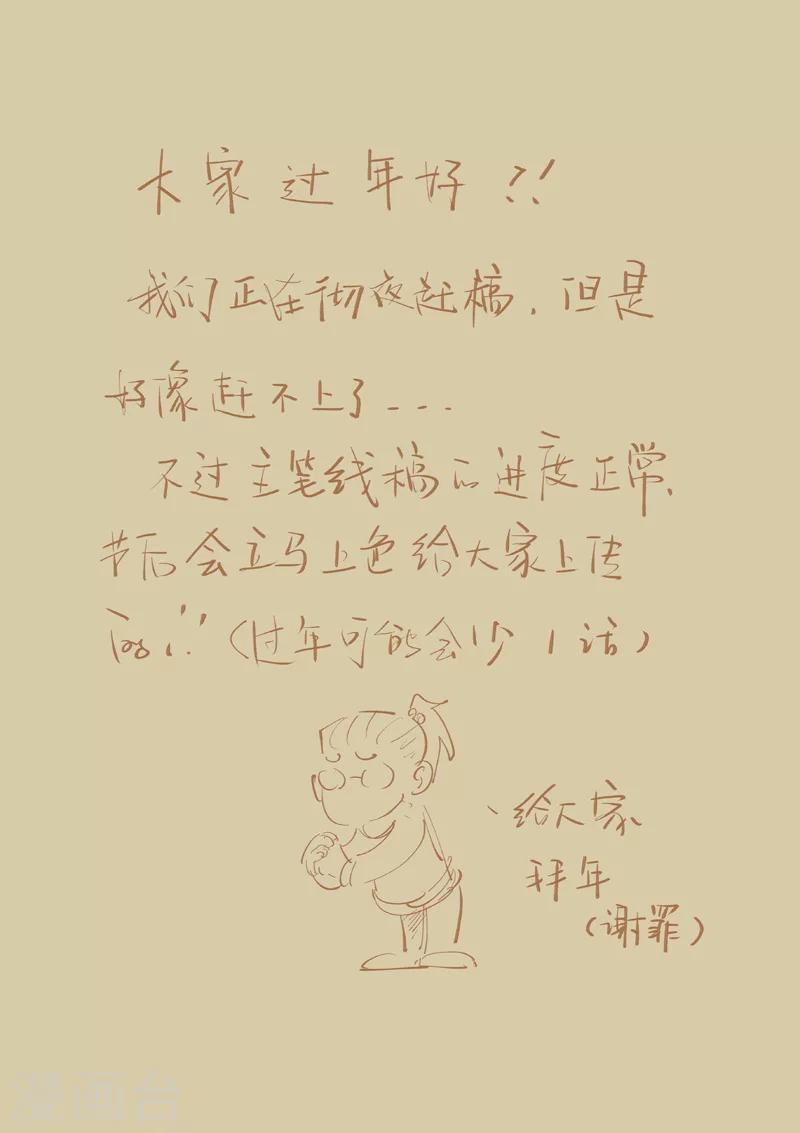 大家过年好!!
我们正在彻夜赶稿,但是
好像赶不上了...
不过主笔线稿的进度正常,
节后会立马上色给大家上传
的!!(过年可能会少1话)
给大家
拜年
(谢罪)
漫画台